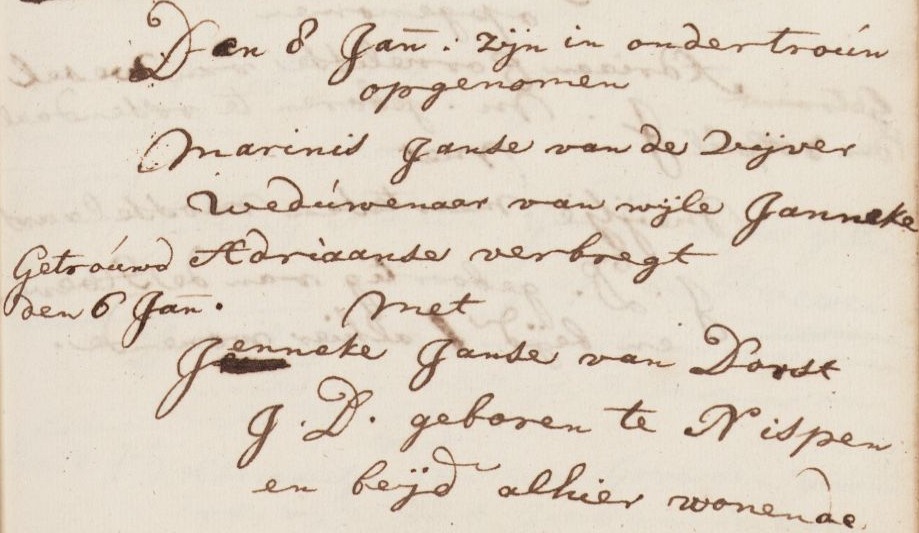 Den 8 Jan̅. zijn in ondertroún
opgenomen
Marinis Janse van de Vijver
Wedúwenaer van wijle Janneke
Getroúwd Adriaanse verbregt
den 6 Jan̅. met
Jenneke Janse van Dorst
J. D. geboren te Nispen
en beijd alhier wonende